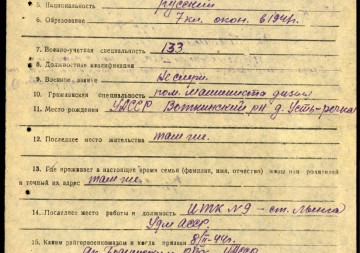 5. Национальность русский
6. Образование 7 кл. окон. в 1941г.
7. Военно-учетная специальность 133
8. Должностная квалификация —
9. Военное звание Не служ.
10. Гражданская специальность пом. машиниста дизеля
11. Место рождения УАССР Воткинский рн д. Усть-речка
12. Последнее место жительства там же.
13. Где проживает в настоящее время семья (фамилия, имя, отчество) жены или родителей
и точный их адрес там же.
14. Последнее место работы и должность ИТК № 9 – ст.
Удм АССР.
15. Каким райгорвоенкоматом и когда призван 8/II-44г.